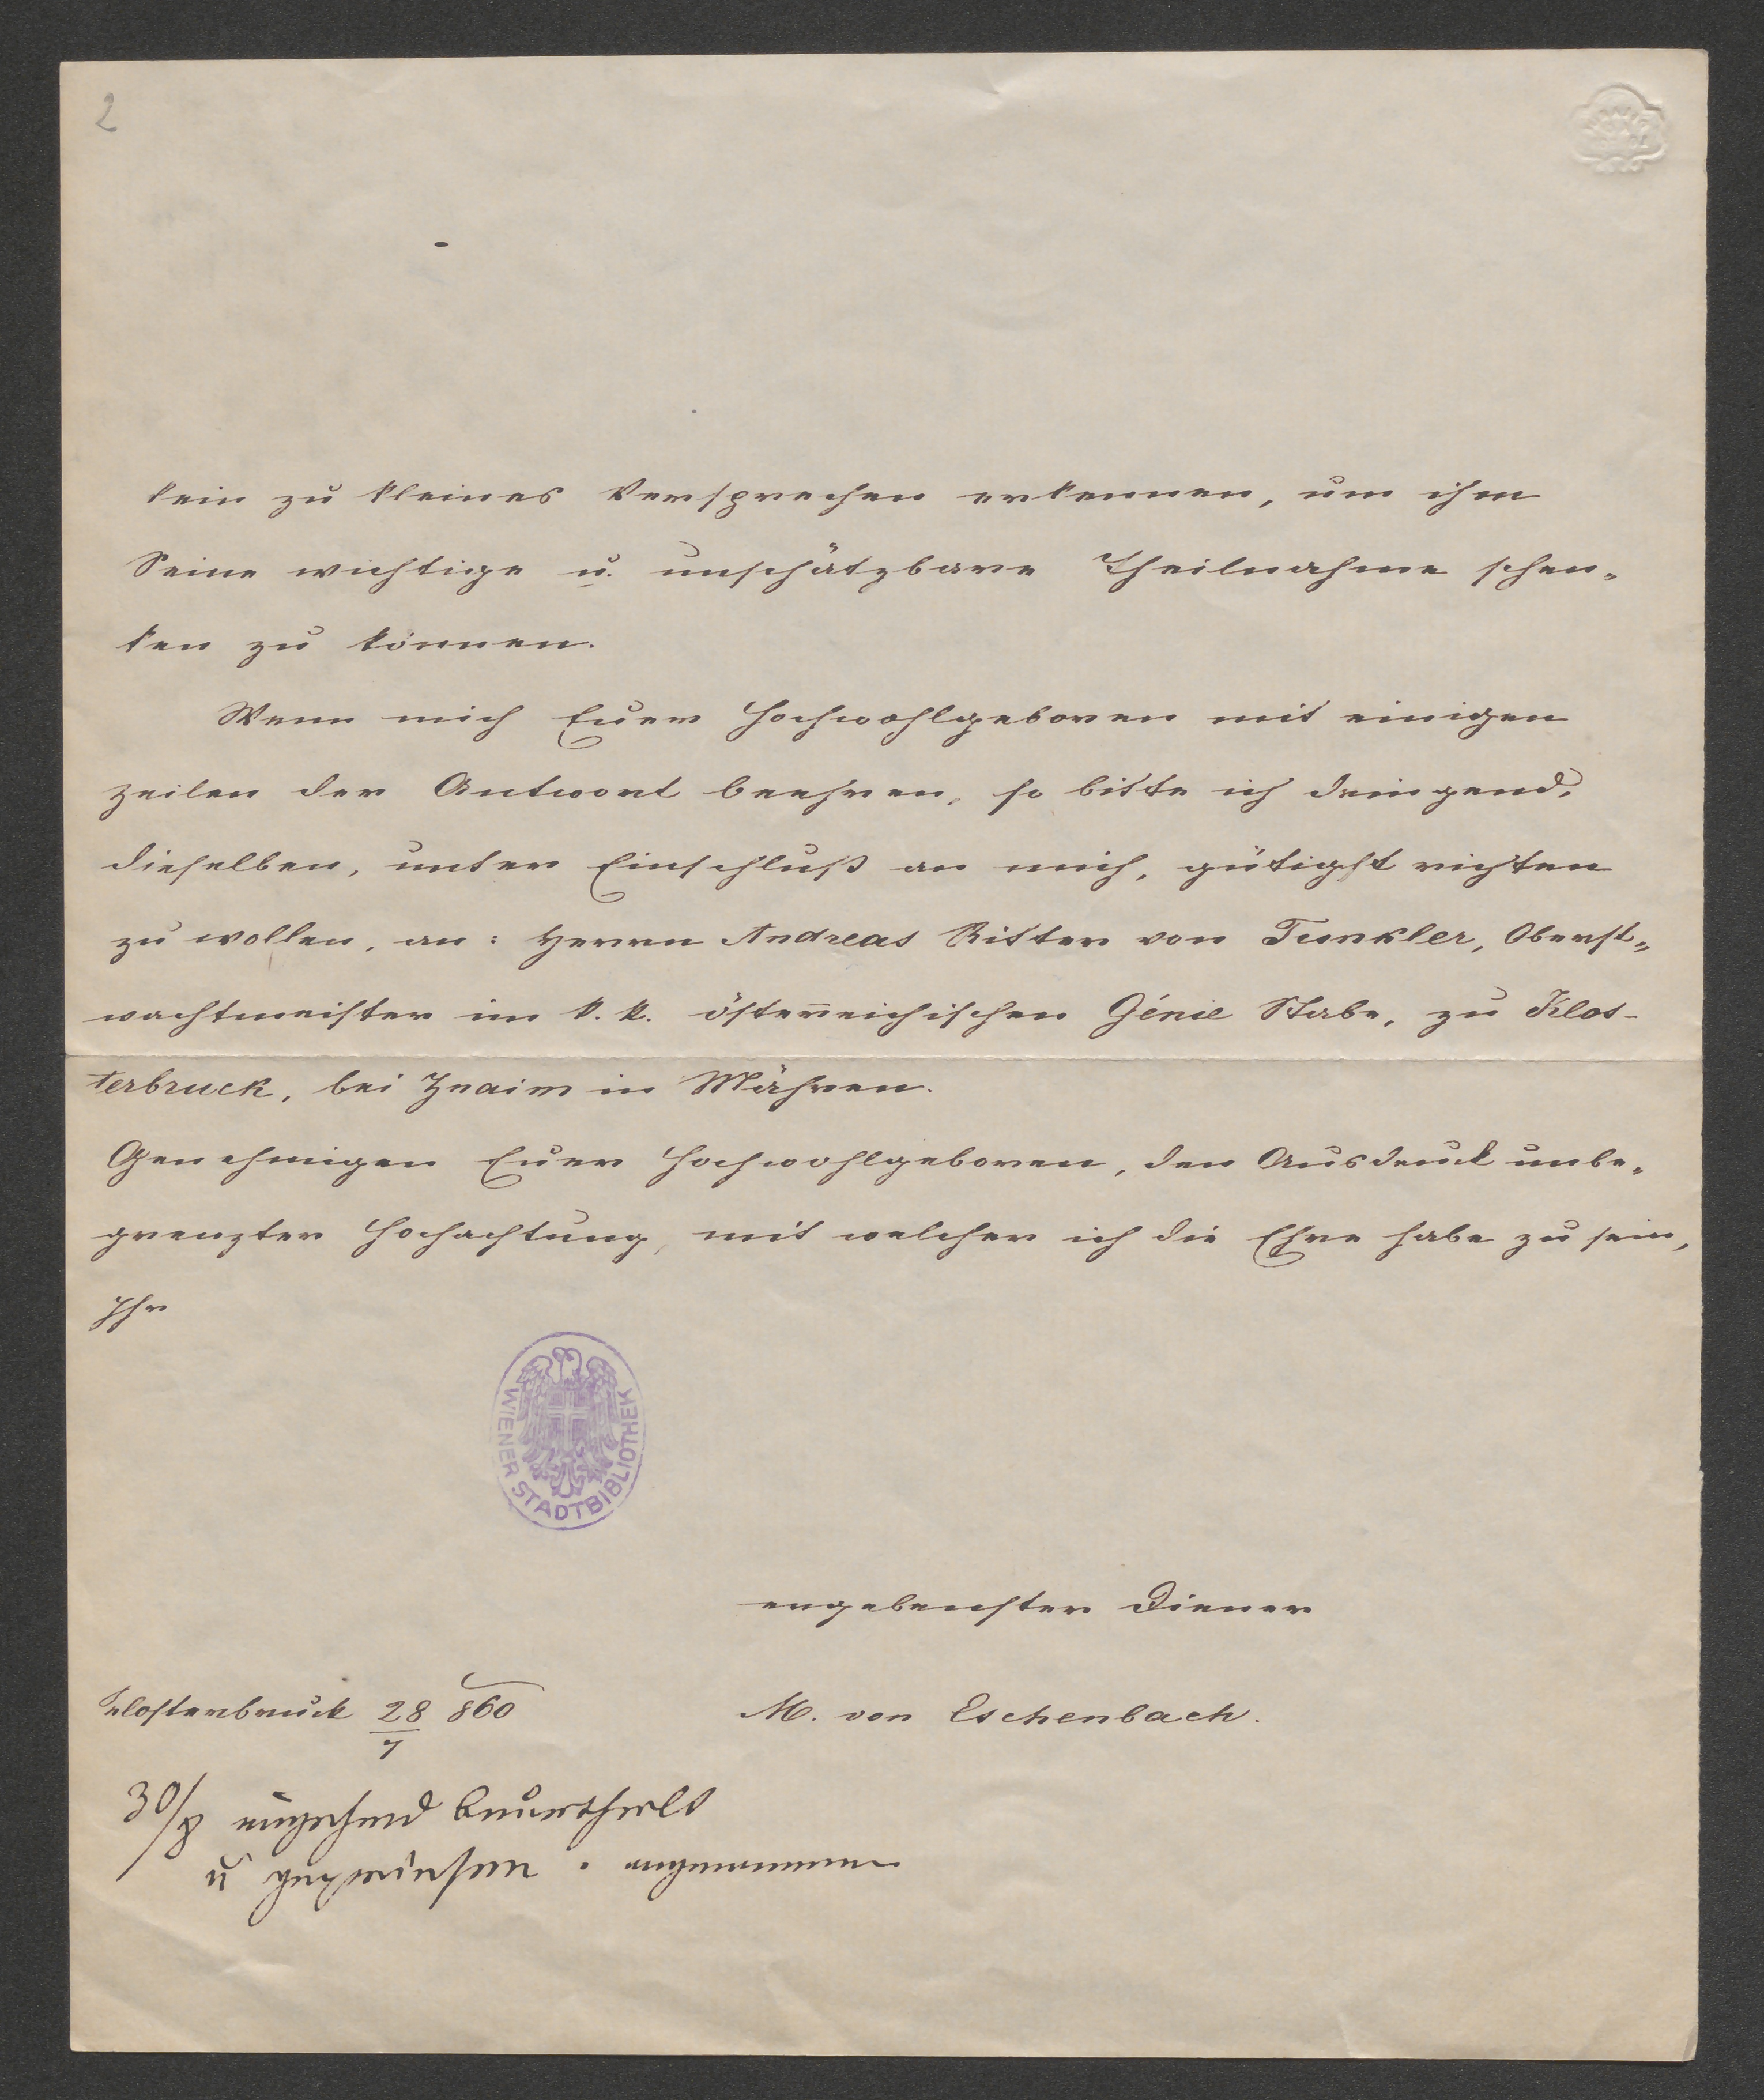 2
kein zu kleines Versprechen erkennen, um ihm
Seine wichtige u. unschätzbare Theilnahme schen„
ken zu können.
Wenn mich Euer Hochwohlgeboren mit einigen
Zeilen der Antwort beehren, so bitte ich dringend,
dieselben, unter Einschluß an mich, gütigst richten
zu wollen, an: Herrn Andreas Ritter von Tunkler, Oberst„
wachtmeister im k. k. österreichischen Génie Stabe, zu Klos-
terbruck, bei Znaim in Mähren.
Genehmigen Euer Hochwohlgeboren, den Ausdruck unbe„
grenzter Hochachtung, mit welcher ich die Ehre habe zu sein,
Ihr
WIENER STADTBIBLIOTHEK
ergebenster Diener
Klosterbruck 28/7 860
M. von Eschenbach.
30/8 eingehend beurtheilt
u gepriesen. angenommen